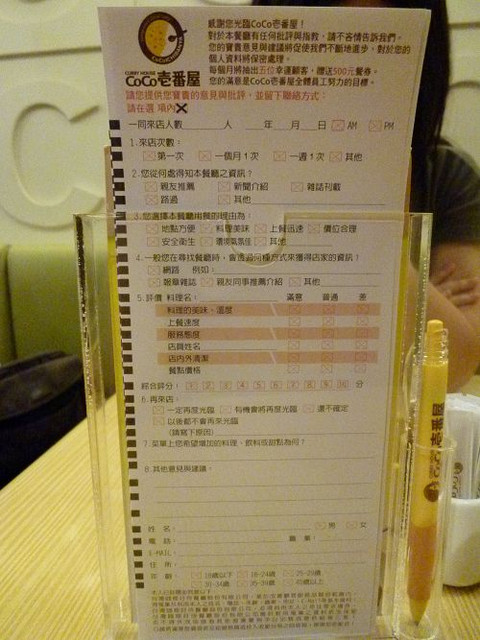 感謝您光臨CoCo壱番屋！
對於本餐廳有任何批評與指教，請不客情告訴我們。
您的寶貴意見與建議將促使我們不斷地進步，對於您的
個人資料將保密處理。
每個月將抽出五位幸運顧客，贈送500元餐券。
您的滿意是CoCo壱番屋全體員工努力的目標。
CURRY HOUSE
CoCo壱番屋
請您提供您寶貴的意見與批評，並留下聯絡方式：
請在選項內X
一同來店人數 人 年 月 日 AM PM
1.來店次數：
第一次 一個月1次 一週1次 其他
2.您從何處得知本餐廳之資訊？
親友推薦 新聞介紹 雜誌刊載
路過 其他
3.您選擇本餐廳用餐的理由為：
地點方便 料理美味 上餐迅速 價位合理
安全衛生 環境氣氛佳 其他
4.一般您在尋找餐廳時，會透過何種方式來獲得店家的資訊？
網路 例如：
報章雜誌 親友同事推薦介紹 其他
5.評價 料理名： 滿意 普通 差
料理的美味、溫度
上餐速度
服務態度
店員姓名
店內外清潔
餐點價格
綜合評分： 1 2 3 4 5 6 7 8 9 10 分
6.再來店：
一定再度光臨 有機會將再度光臨 還不確定
以後都不會再來光臨
(請寫下原因)
7.菜單上您希望增加的料理、飲料或甜點為何？
8.其他意見與建議：
姓 名： 男 女
電 話： 職 業：
E-MAIL：
住 所：
年 齡： 18歲以下 18-24歲 25-29歲
30-34歲 35-39歲 40歲以上
CoCo壱番屋